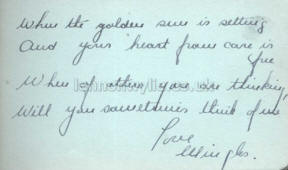 When the golden sun is setting
And your heart from care is
free
When of others you are thinking,
Will you sometimes think of me
Love